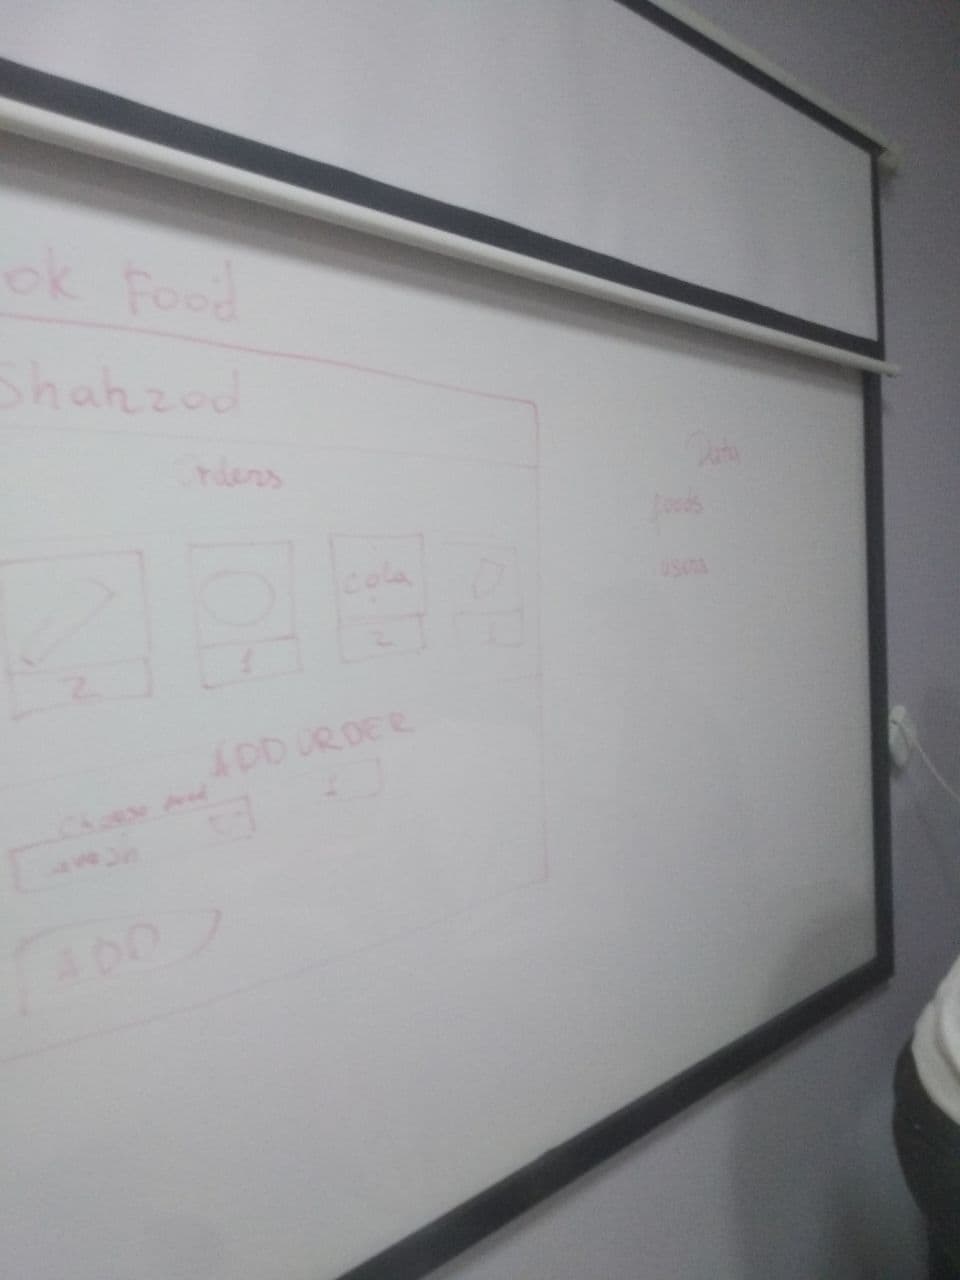 ok Food
Shahzod
Orders
cola
2 1 2 1
ADD ORDER
Choose food
1
ADD
Data
foods
users